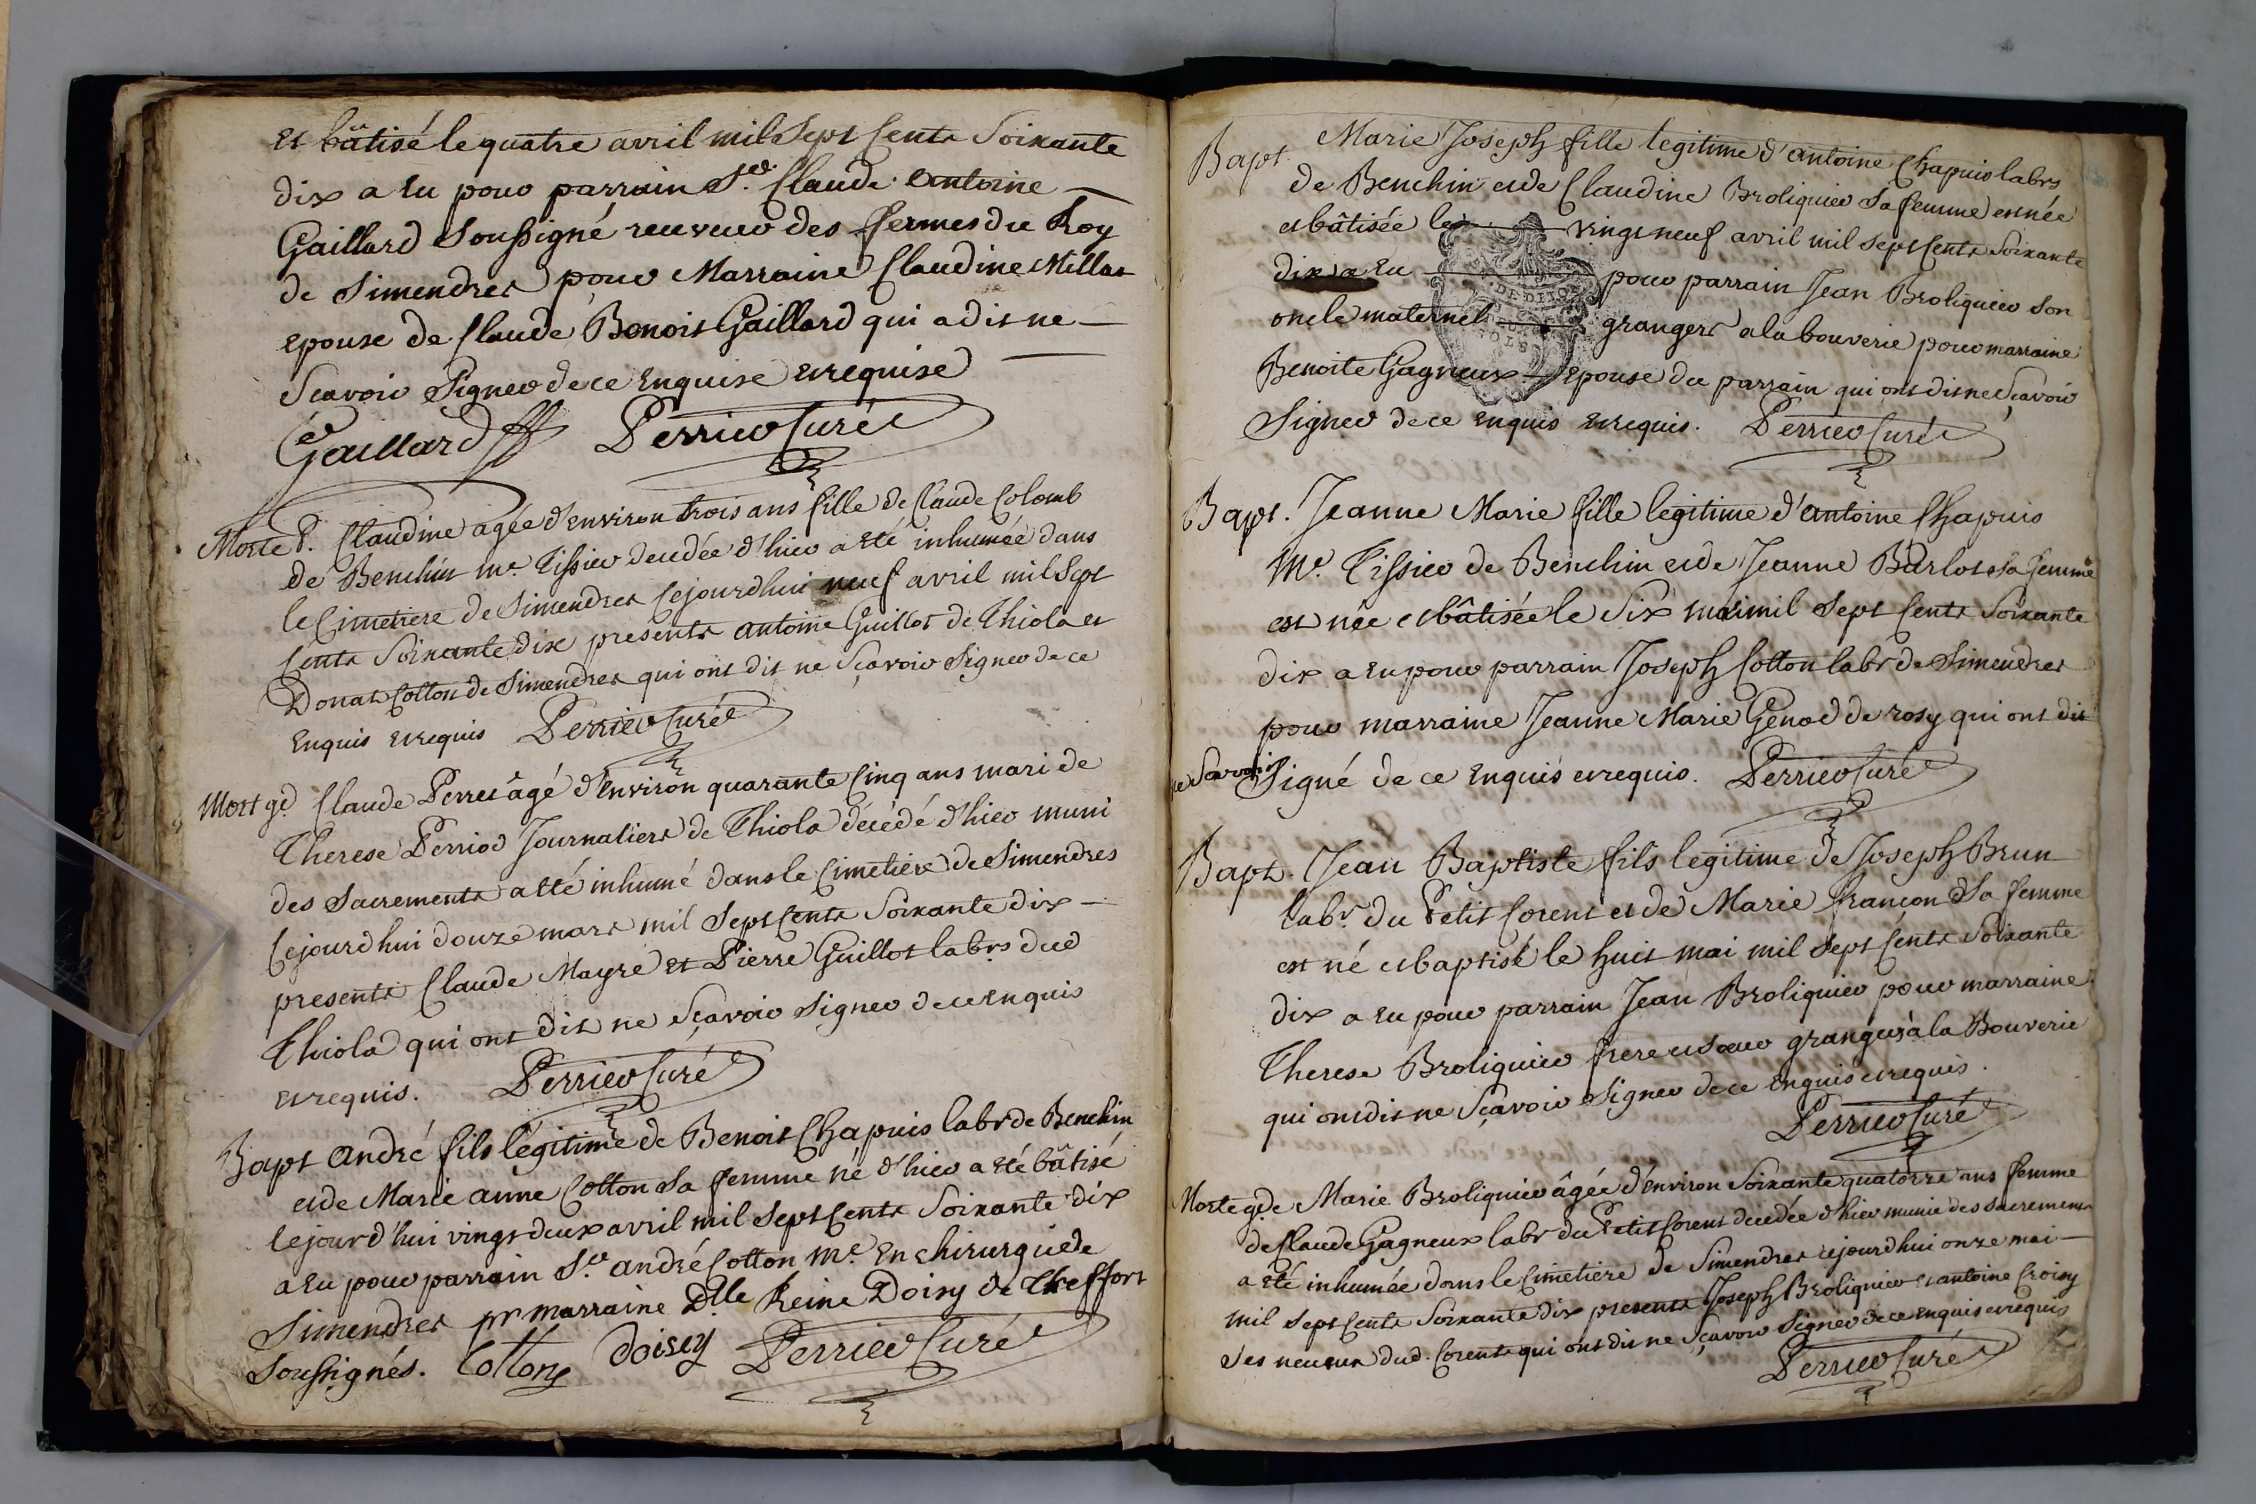 et bâtisé le quatre avril mil Sept Cents Soixante
dix a Eu pour parrain Sr. Claude Antoine
Gaillard Soussigné receveur des fermes du Roy
de Simendres pour Marraine Claudine Millat
epouse de Claude Benoit Gaillard qui a dit ne
Scavoir Signer de ce Enquise et requise
Gaillard Perrier Curé
Morte p. Claudine agée d'environ trois ans fille de Claude Colomb
de Benchin me. Tissier decedée d'hier a eté inhumée dans
le Cimetiere de Simendres Cejourdhui neuf avril mil Sept
Cents Soixante dix presents antoine Guillot de Thiola et
Donat Cotton de Simendres qui ont dit ne Sçavoir Signer de ce
Enquis et requis Perrier Curé
Mort gd. Claude Perret âgé d'environ quarante Cinq ans mari de
Therese Perriod Journaliers de Thiola décédé d'hier muni
des Sacrements a eté inhumé dans le Cimetiere de Simendres
Cejourdhui douze mars mil Sept Cents Soixante dix
presents Claude Mayre et Pierre Guillot labrs dud
Thiola qui ont dit ne Sçavoir Signer de ce enquis
et requis. Perrier Curé
Bapt André fils légitime de Benoit Chapuis labr de Benchin
et de Marie anne Cotton Sa femme né d'hier a eté bâtisé
Cejourd'hui vingt deux avril mil Sept Cents Soixante dix
a Eu pour parrain Sr. André Cotton Me. En chirurgie de
Simendres pr marraine Dlle Reine Doisy de Treffort
Soussignés. Cotton Doisey Perrier Curé
Bapt. Marie Joseph fille legitime d'antoine Chapuis labrs
de Benchin et de Claudine Broliquier Sa femme est née
et bâtisée le vingt neuf avril mil Sept Cents Soixante
dix a Eu pour parrain Jean Broliquier Son
oncle maternel grangers a la bouverie pour marraine
Benoite Gagneux epouse du parrain qui ont dit ne Sçavoir
Signer de ce Enquis et requis. Perrier Curé
Bapt. Jeanne Marie fille legitime d'antoine Chapuis
Me. Tissier de Benchin et de Jeanne Barlot Sa femme
est née et bâtisée le Six mai mil Sept Cents Soixante
dix a Eu pour parrain Joseph Cotton labr de Simendres
pour marraine Jeanne Marie Genod de rosy qui ont dit
ne Scavoir Signé de ce Enquis et requis. Perrier Curé
Bapt. Jean Baptiste fils legitime de Joseph Brun
labr. du Petit Corent et de Marie françon Sa femme
est né et baptisé le huit mai mil Sept Cents Soixante
dix a Eu pour parrain Jean Broliquier pour marraine
Therese Broliquier frere et Sœur grangers à la Bouverie
qui ont dit ne Sçavoir Signer de ce Enquis et requis.
Perrier Curé
Morte gde. Marie Broliquier âgée d'environ Soixante quatorze ans femme
de Claude Gagneux labr du Petit Corent decedée d'hier munie des Sacrements
a eté inhumée dans le Cimetiere de Simendres cejourdhui onze mai
mil Sept Cents Soixante dix presents Joseph Broliquier et antoine Croisy
Ses neveux dud. Corent qui ont dit ne Sçavoir Signer de ce enquis et requis
Perrier Curé